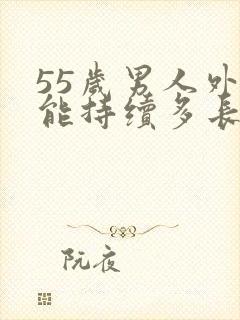 55歲男人外
能持續多長
阮夜